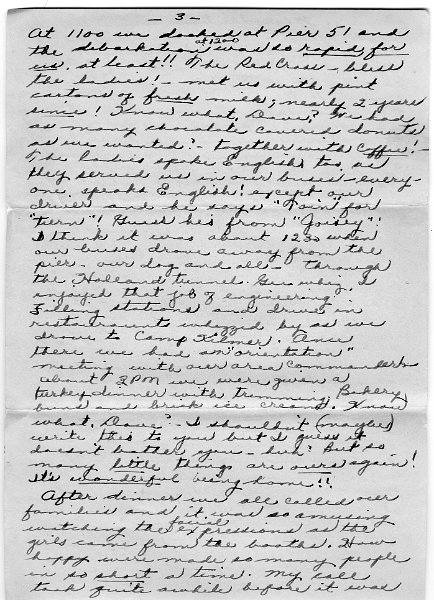 - 3 -
At 1100 we docked at Pier 51 and
the debarkation at 1200 was so rapid for
us, at least!! The Red Cross - bless
the ladies! - met us with pint
cartons of fresh milk; nearly 2 years
since! Know what, Dave? We had
as many chocolate covered donuts
as we wanted? - together with coffee! -
The ladies spoke English too, as
they served us in our buses - every-
one speaks English! except our
driver and he says "Toin" for
"turn"! Guess he's from "Joisey"!
I think it was about 1230 when
our buses drove away from the
pier - our dog and all - through
the Holland tunnel. Gee whiz, I
enjoyed that job of engineering!
Filling stations and drive in
restaurants whizzed by as we
drove to Camp Kilmer. Once
there we had an "orientation"
meeting with our area commander
about 2PM we were given a
turkey dinner with trimming, Bakery
buns and brick ice cream. Know
what, Dave? - I shouldn't (maybe)
write this to you but I guess it
doesn't bother you - huh? But so
many little things are ours again!
It's wonderful being home!!
After dinner we all called our
families and it was so amusing
watching the facial expressions as the
girls came from the booths. How
happy were made so many people
in so short a time. My call
took quite awhile before it was